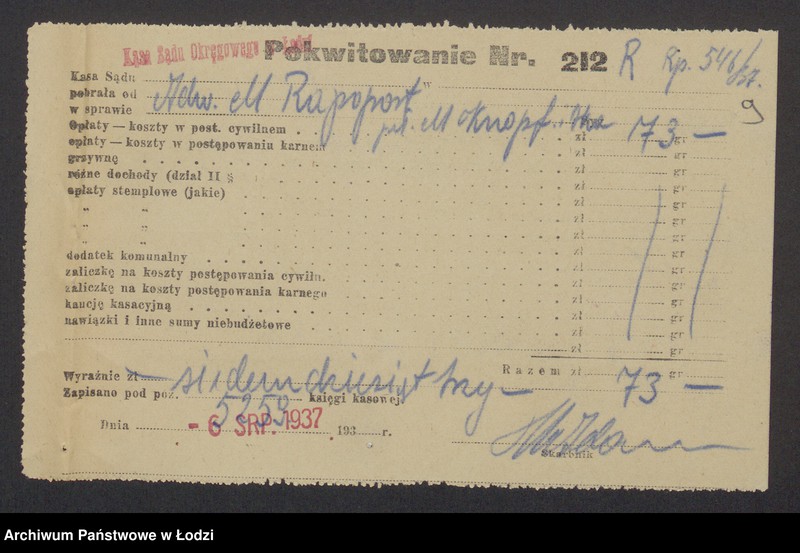 Kasa Sądu Okręgowego Łodzi
Pokwitowanie Nr. 212 R Rp. 546/37.
Kasa Sądu w
9
pobrała od Adw. M Rapoport
w sprawie M Knopf
Opłaty — koszty w post. cywilnem zł 73 — gr
opłaty — koszty w postępowaniu karnem zł gr
grzywnę zł gr
różne dochody (dział II § zł gr
opłaty stemplowe (jakie) zł gr
„ „ zł gr
„ „ zł gr
„ „ zł gr
dodatek komunalny zł gr
zaliczkę na koszty postępowania cywiln. zł gr
zaliczkę na koszty postępowania karnego zł gr
kaucję kasacyjną zł gr
nawiązki i inne sumy niebudżetowe zł gr
zł gr
Wyraźnie zł — siedemdziesiąt trzy — Razem zł 73 —
Zapisano pod poz. 5259 księgi kasowej
Dnia - 6 SRP. 1937 193 r.
Skarbnik
Archiwum Państwowe w Łodzi